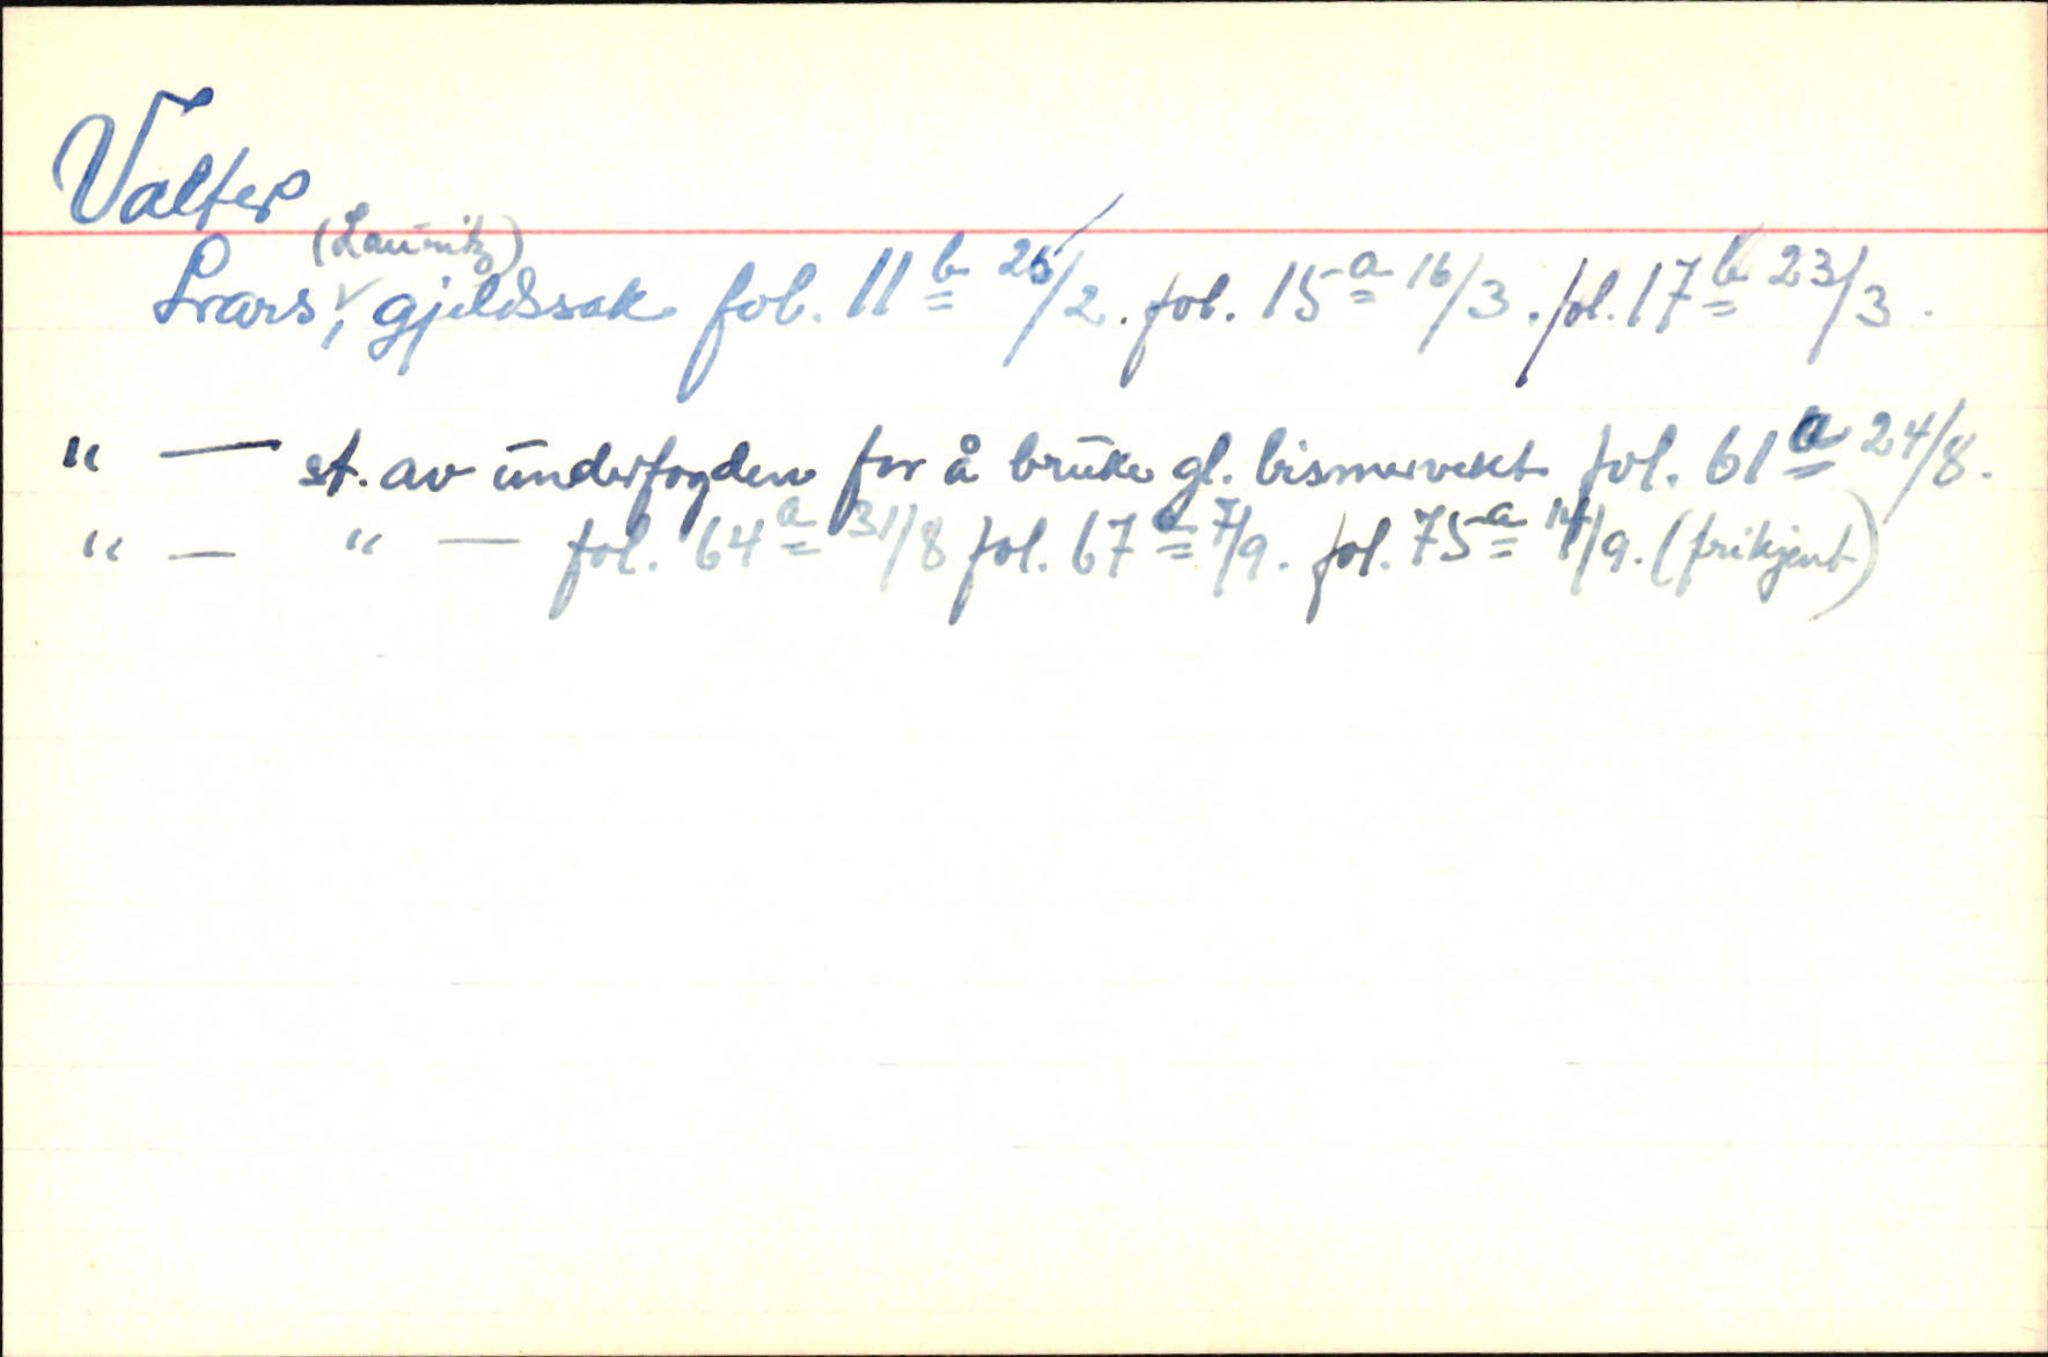 Valter
(Launitz)
Lrars, gjeldssak fol. 11 b 26/2. fol. 15 a 16/3. fol. 17 b 23/3.
" — st. av underfogden for å bruke gl. bismervekt fol. 61 a 24/8.
" — " — fol. 64 a 31/8 fol. 67 a 7/9. fol. 75 a 14/9. (frikjent)